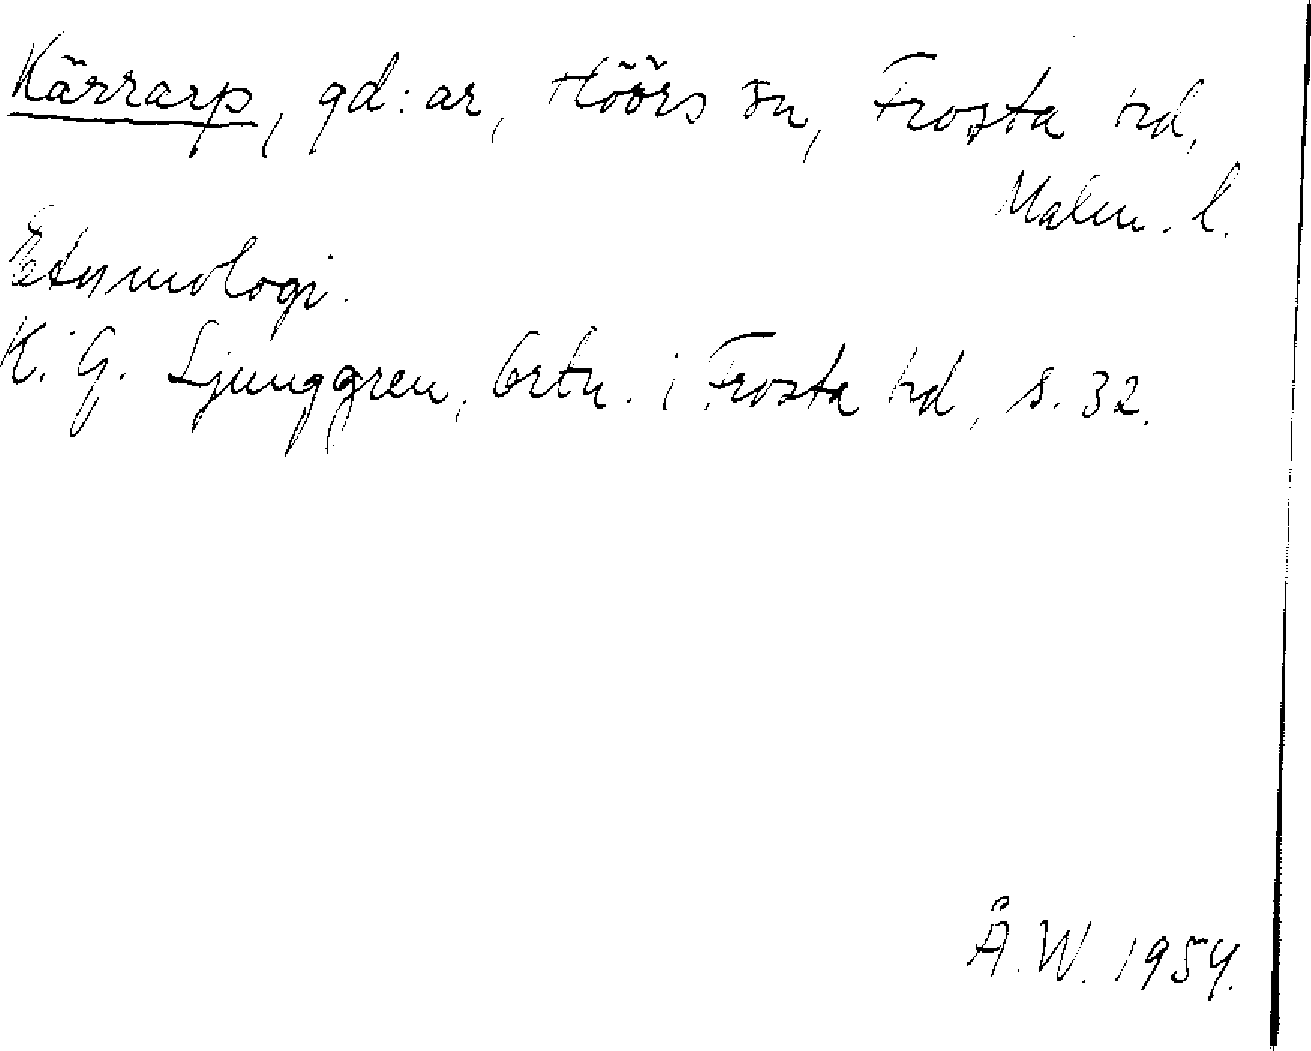 Kärrarp, gd:ar, Höörs sn, Frosta hd,
Malm. l.
Etymologi.
K. G. Ljunggren, Ortn. i Frosta hd, s. 32.
Å.W. 1954.